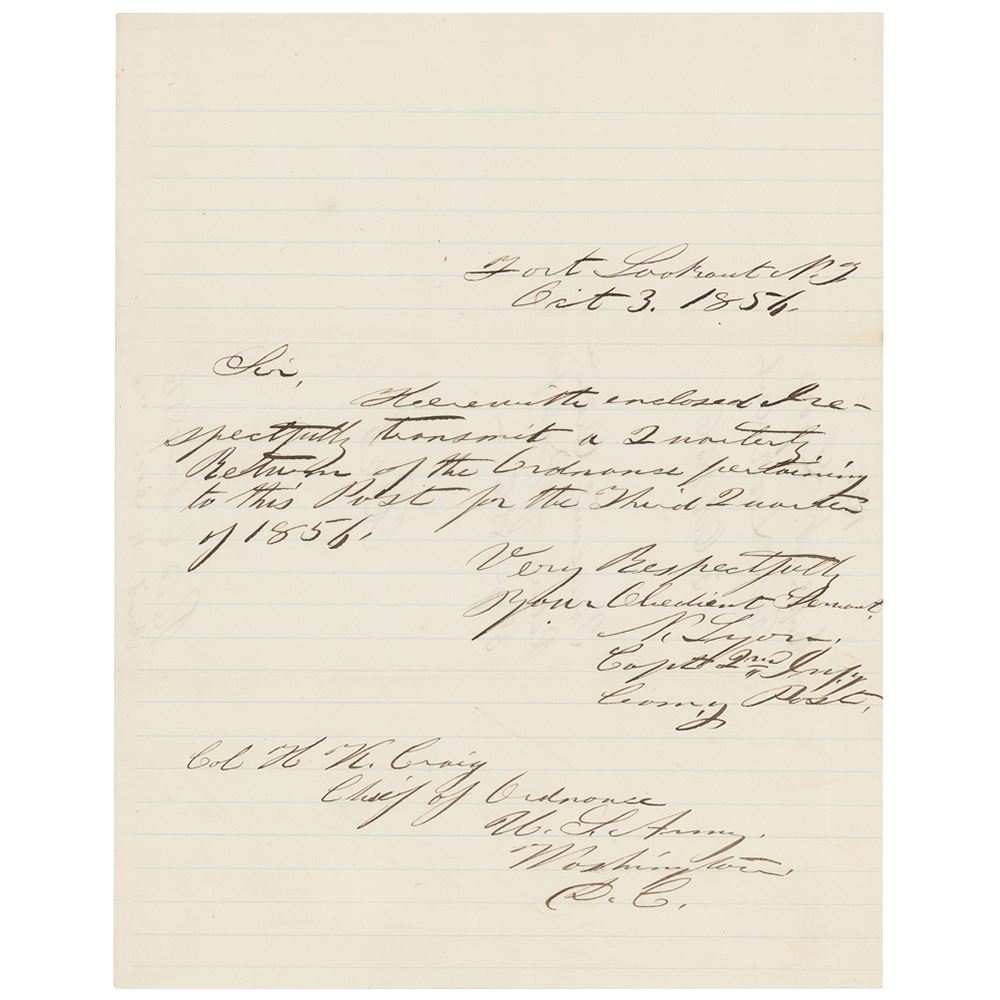 Fort Lookout N.T
Oct 3. 1856.
Sir,
Herewith enclosed I re-
spectfully transmit a Quarterly
Return of the Ordnance pertaining
to this Post for the Third Quarter
of 1856.
Very Respectfully
Your Obedient Servant,
N. Lyon,
Capt 2nd Infy
Com,g Post,
Col H. K. Craig
Chief of Ordnance
U. S. Army.
Washington,
D. C.